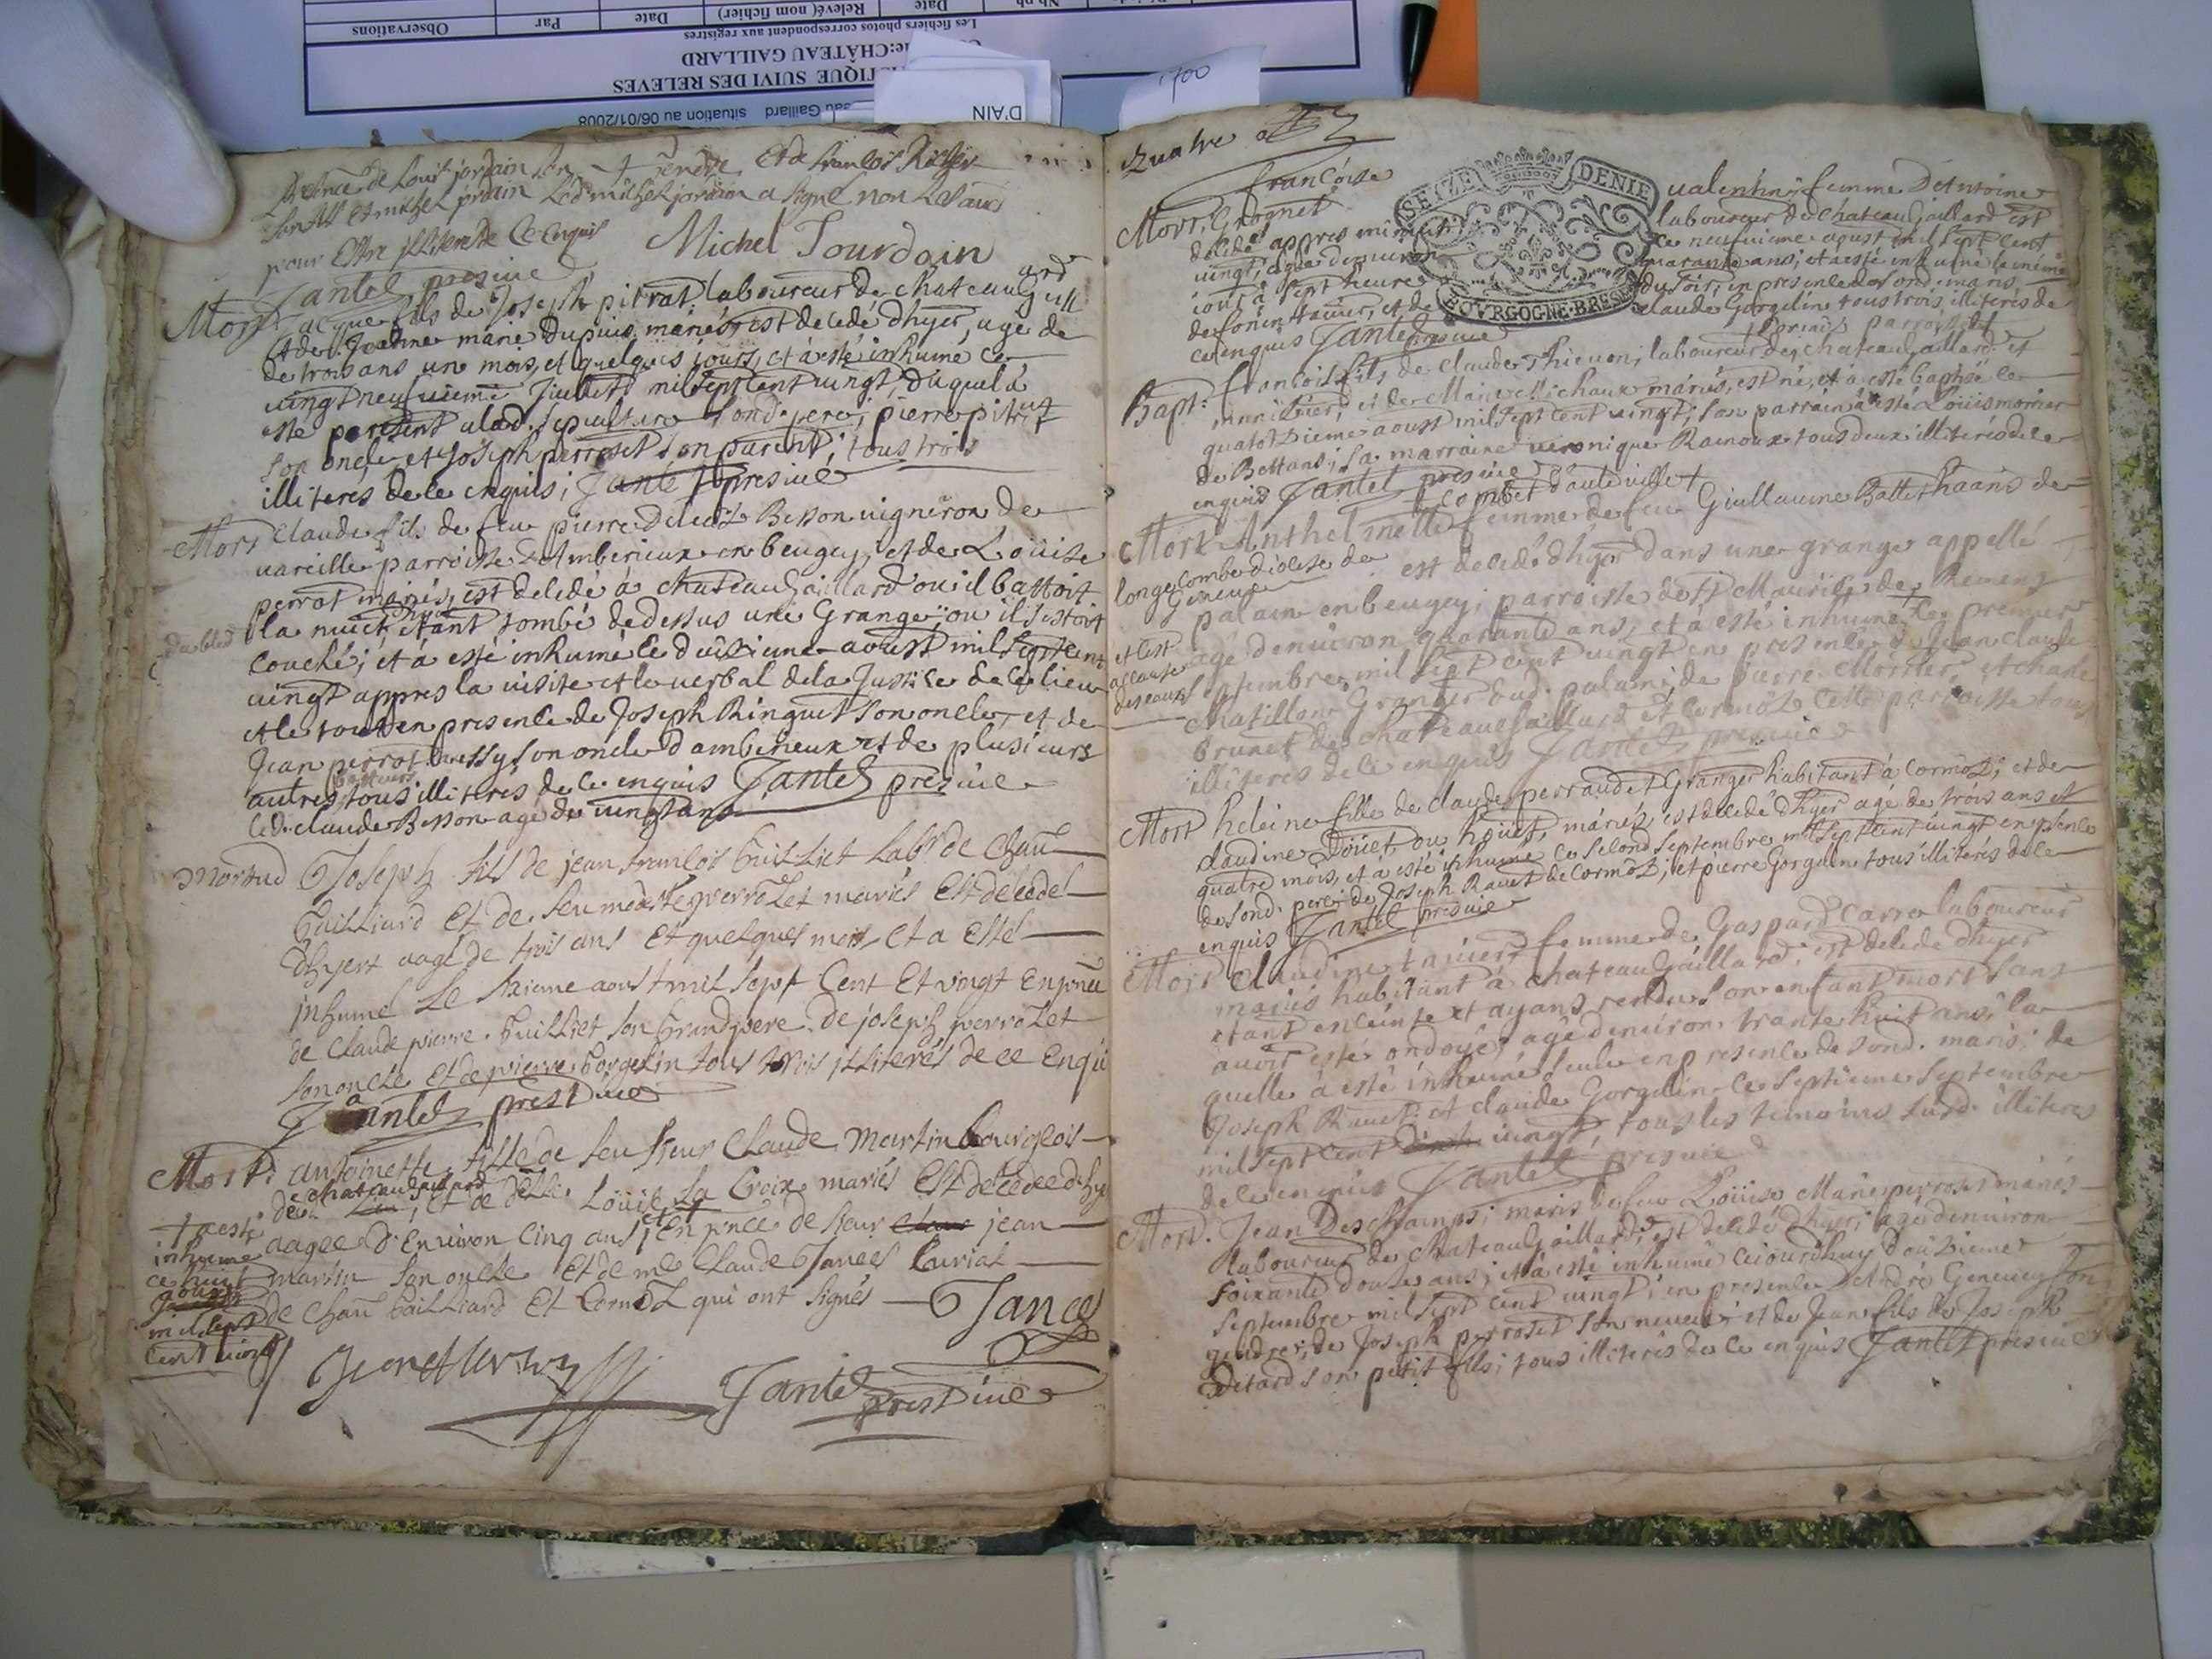 Observations
Par
Date
Relevé( nom fichier)
Date
Nb ph
Les fichiers photos correspondent aux registres
CHÂTEAU GAILLARD
SUIVI DES RELEVES
Gaillard situation au 06/01/2008
D'AIN
1700
presence de Louis jordain son gendre Et de francois
son fils et michel jordain Led michel jordain a signé non Les autres
pour Estre illiteré de Ce Enquis Michel Jourdain
Jantet presvic
Mort Jacque fils de Joseph pitrat laboureur de chateaugaillard
et de Jeadme marie Dupuis mariés est decedé dhyer, agé de
de trois ans un mois, et quelques jours, et à esté inhumé ce
vingt neufvieme Juillet mil sept cent vingt, duquel à
esté present alad. sepulture sond. pere, pierre pitrat
son oncle et Joseph perroset son parent, tous trois
illiteres de ce enquis; Jantet presvic
Mort Claude fils de feu pierre Besson vigneron de
vareille parroisse d'Amberieux en beugey, et de Loüise
perrot mariés, est decedé à chateaugaillard ou il battoit
du bled
la nuict etant tombé de dessus une Grange, ou il s'estoit
couché; et à esté inhumé le deuxieme aoust mil sept cent
vingt appres la visite et le verbal de la Justice de ce lieu
et le tout en presence de Joseph Ringuet son oncle, et de
Jean perrot aussy son oncle d'amberieux et de plusieurs
batteurs
autres tous illiterés de ce enquis Jantet presvic
led. claude Besson agé de vingt ans
Mortud Joseph fils de jean francois Guilliet Labr de chau
Gailliard Et de feu modeste perrozet mariés Est decedé
dhyert aagé de trois ans Et quelques mois, Et a Esté
inhumé Le sixieme aoust mil sept Cent Et vingt En pnce
de Claude pierre Guilliet son Grandpere de joseph perrozet
son oncle Et de pierre Gorgelin tous trois illiterés de ce Enquis
Jantet prest vic
Mort: antoinette fille de feu sieur Claude Martin bourgeois
de chateaugaillard, et de delle Loüise La Croix mariés Est decedee dhy
aagee d'Environ Cinq ans † En pnce de sieur jean
martin son oncle Et de me Claude Jances Curial
de chau Gailliard Et Cormoz qui ont Signés Jances
† a esté
inhumé
ce huit
aoust
mil sept
cent vingt
Jean Martin Jantet
prest vic
quatre
françoise
Mort; Grognet valentin femme D'Antoine
laboureur de chateaugaillard est
decedé appres minuit ce neufvieme aoust mil sept cent
vingt, agée d'environ quarante ans; et a esté inhumé le meme
iour à sept heures du soir, en presence de sond. maris
de son, et de claude Gorgelin tous trois illiteres de
ce enquis Jantet presvic
Bapt: francois fils de claude Thievon, laboureur de chateaugaillard et
et de Marie Michaux mariés, est né, et à esté baptisé le
quatorzieme aoust mil sept cent vingt; son parrain à esté Loüis morier
de Bettans; sa marraine veronique Ramoux tous deux illiterés de ce
enquis Jantet presvic
Mort Anthelmette combet d'auteville † femme de feu Guillaume de
longecombe diocese de Geneve est decedé dhyer dans une grange appellé
palain en beugey; parroisse de St Maurice de Remens
agé denviron quarante ans, et à esté inhumé le premier
septembre mil sept cent vingt en presence de Jean claude
chatillon Granger dud. palain; de pierre Mortier, et charle
brunet de chateaugaillard et cormoz cette parroisse tous
illiteres de ce enquis Jantet presvic
et cest
a cause
des eaux
Mort heleine fille de claude perraudet Granger habitant à cormoz; et de
claudine Doüet, ou hoüet, mariés, est decedé dhyer agé de trois ans et
quatre mois, et à esté inhumé ce second septembre mil sept cent vingt en psence
de sond. pere; de Joseph Ravet de cormoz; et pierre Gorgelin tous illiterés de ce
enquis Jantet presvic
Mort Claudine taviers femme de Gaspard Carre laboureur
mariés habitant à chateaugaillard; est decedé dhyer
etant enceinte et ayans rendu son enfant mort sans
avoir esté ondoyé; agé denviron trante huit ans, la
quelle à esté inhumé seule en presence de sond. maris; de
Joseph Ravet, et claude Gorgelin le septieme septembre
mil sept cent vingt, tous les temoins susd. illiteres
de ce enquis Jantet presvic
Mort. Jean Deschamps; maris de feu Loüise Marie perroset mariés
laboureur de chateaugaillard; est decedé dhyer, agé denviron
soixante douze ans; et à esté inhumé ceiourdhuy douzieme
septembre mil sept cent vingt; en presence d'André Genevey son
gendre; de Joseph perroset son neveu; et de Jean fils de Joseph
Ditard son petit fils; tous illiterés de ce enquis Jantet presvic
SEIZE DENIE
BOVRGOGNE·BRESSE